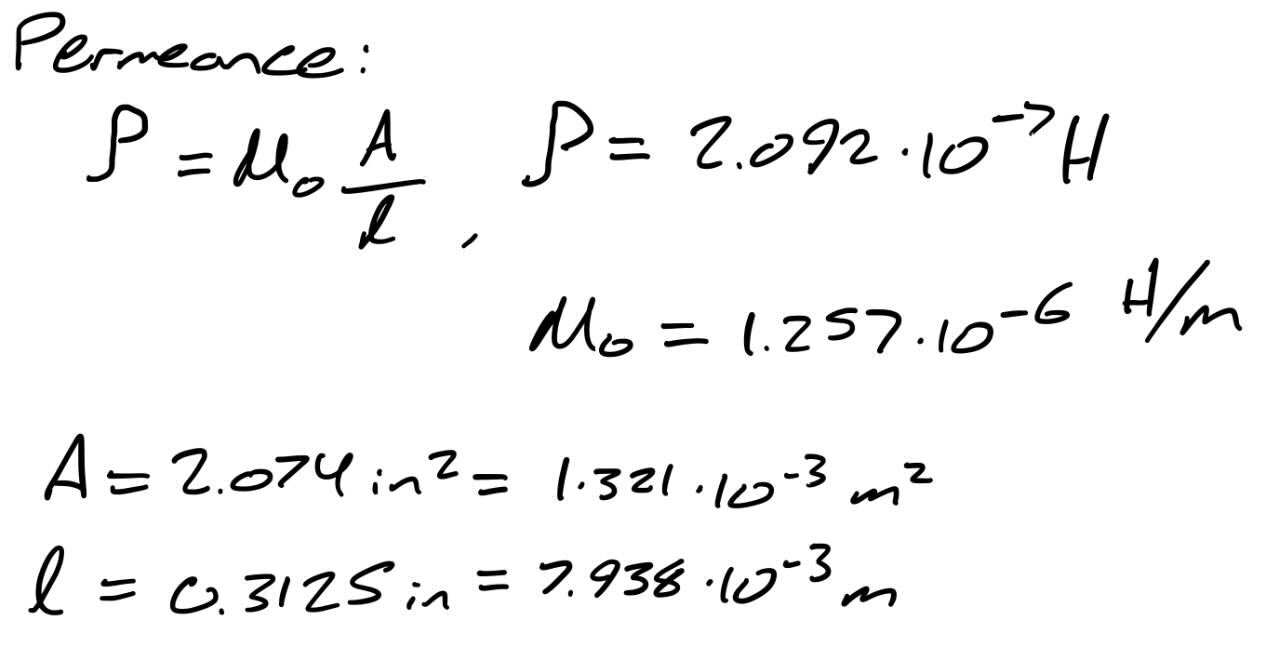 Permeance:
P = μ₀ A/l , P = 2.092·10⁻⁷ H
μ₀ = 1.257·10⁻⁶ H/m
A = 2.074 in² = 1.321·10⁻³ m²
l = 0.3125 in = 7.938·10⁻³ m